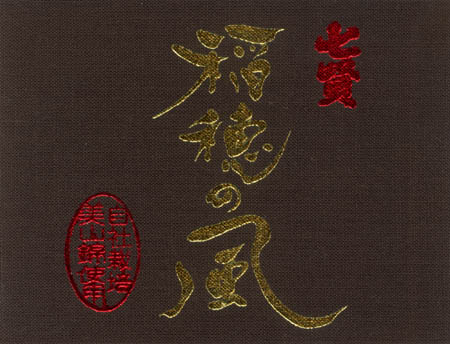 七賢
稲穂の風
自社栽培
美山錦使用